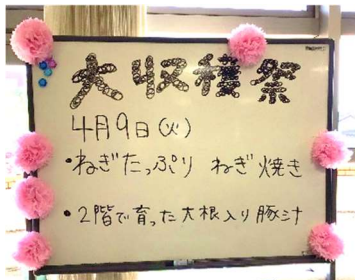 大収穫祭
4月9日(火)
・ねぎたっぷり ねぎ焼き
・2階で育った大根入り豚汁